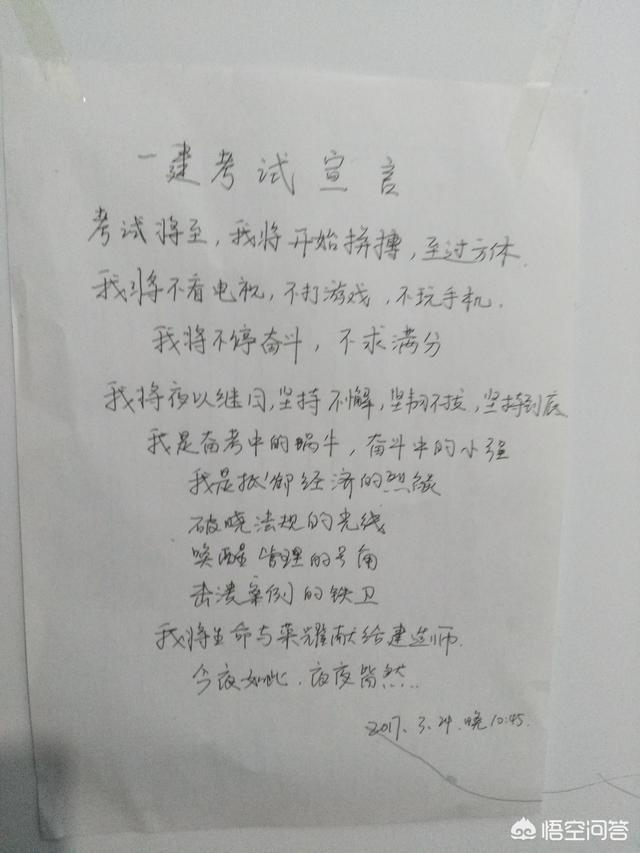 一建考试宣言
考试将至，我将开始拼搏，至过方休.
我将不看电视，不打游戏，不玩手机.
我将不停奋斗，不求满分
我将夜以继日，坚持不懈，坚韧不拔，坚持到底
我是备考中的蜗牛，奋斗中的小强
我是抵御经济的烈焰
破晓法规的光线
唤醒管理的号角
击溃案例的铁卫
我将生命与荣耀献给建造师.
今夜如此.夜夜皆然..
2017.3.24.晚10:45.
悟空问答